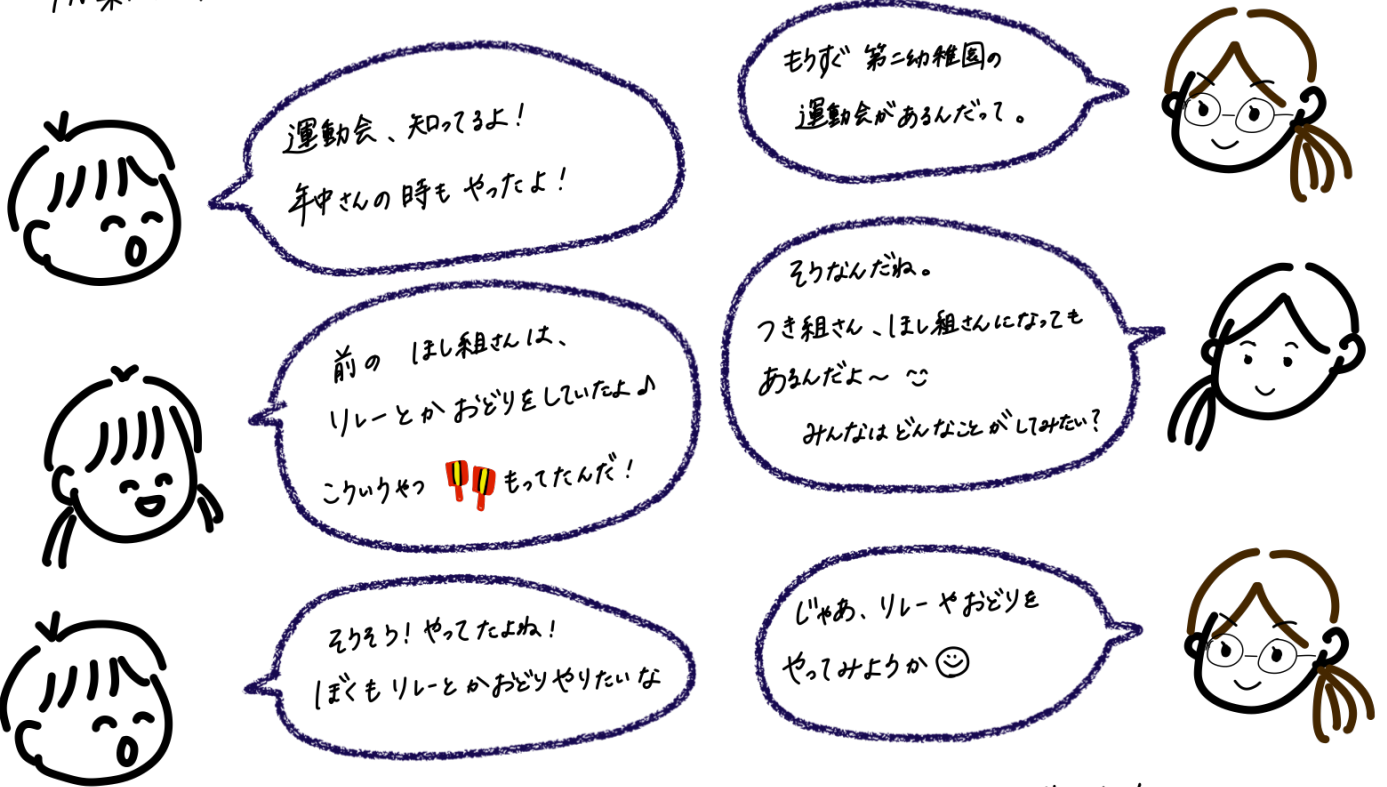 もうすぐ 第二幼稚園の
運動会があるんだって。
運動会、知ってるよ!
年中さんの時も やったよ!
そうなんだね。
つき組さん、ほし組さんになっても
あるんだよ〜
みんなは どんなことが してみたい?
前の ほし組さんは、
リレーとか おどりをしていたよ♪
こういうやつ もってたんだ!
そうそう! やってたよね!
ぼくも リレーとか おどり やりたいな
じゃあ、リレーや おどりを
やってみようか